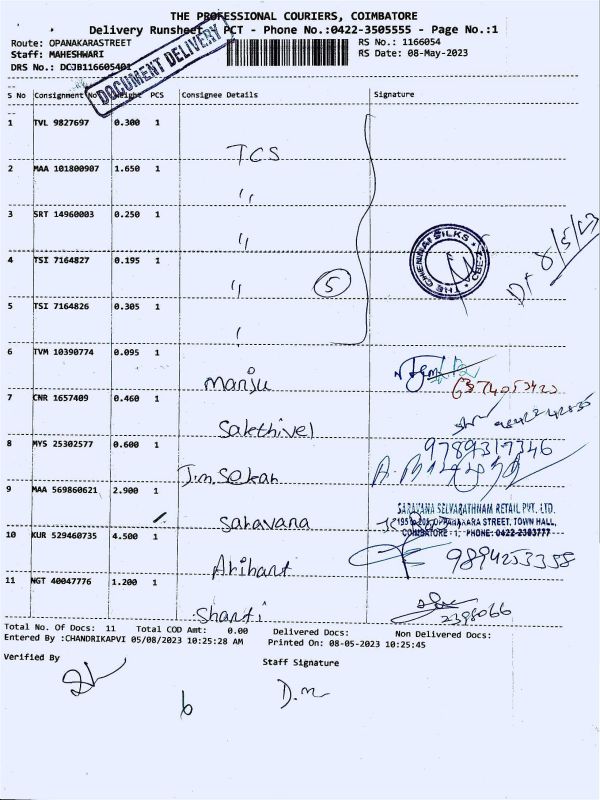 THE PROFESSIONAL COURIERS, COIMBATORE
Delivery Runsheet - PCT - Phone No.:0422-3505555 - Page No.:1
Route: OPANAKARASTREET
RS No.: 1166054
Staff: MAHESHWARI
RS Date: 08-May-2023
DRS No.: DCJB116605401
DOCUMENT DELIVERY
S No Consignment No Weight PCS Consignee Details Signature
1 TVL 9827697 0.300 1 TCS
2 MAA 101800907 1.650 1 "
3 SRT 14960003 0.250 1 "
THE CHENNAI SILKS CBE-1
8/5/23
4 TSI 7164827 0.195 1 "
5
5 TSI 7164826 0.305 1
6 TVM 10390774 0.095 1 Manju
7 CNR 1657409 0.460 1 Sakthivel
8 MYS 25302577 0.600 1 J.m. Sekar 9789317346
9 MAA 569860621 2.900 1 Saravana
SARAVANA SELVARATHNAM RETAIL PVT. LTD.
OPANAKARA STREET, TOWN HALL,
COIMBATORE - 1, PHONE: 0422-2303777
10 KUR 529460735 4.500 1 Arihant 9894253358
11 NGT 40047776 1.200 1 Shanti 2398066
Total No. Of Docs: 11 Total COD Amt: 0.00 Delivered Docs: Non Delivered Docs:
Entered By :CHANDRIKAPVI 05/08/2023 10:25:28 AM Printed On: 08-05-2023 10:25:45
Verified By
Staff Signature
D.m
b